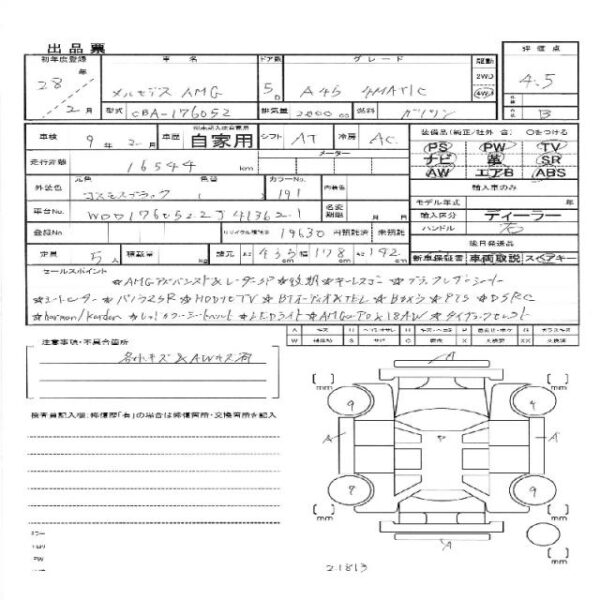 出品票
初年度登録 車名 ドア数 グレード 駆動 評価点
28年 メルセデス AMG 5D A45 4MATIC 2WD 4.5
2月 型式 CBA-176052 排気量 2000cc 燃料 ガソリン 4WD B
車検 9年2月 車歴 自家用 シフト AT 冷房 AC 装備品(純正/社外 含) ○をつける
走行距離 16544 km メーター PS PW TV
元色 カラーNo. ナビ 革 SR
外装色 コスモスブラック ( ) 191 内装色 AW エアB ABS
輸入車のみ
車台No. WDD1760522J413621 名変期限 月 日 モデル年式 年
輸入区分 ディーラー
登録No. リサイクル預託金 19630 円 預託済 未預託 ハンドル 右
後日発送品
定員 5人 積載量 kg 諸元 長さ 435cm 幅 178cm 高さ 142cm 新車保証書 車両取説 スペアキー
セールスポイント
★AMGアドバンスト&レーダーSP ★鉄期★キーレスゴー★ブラックレザーシート
★シートヒーター★パノラマSR★HDDナビTV★BTオーディオ&TEL★Bカメラ★PTS★DSRC
★harman/kardon★LEDライト★AMG 18AW★
注意事項・不具合箇所
各小キズ&AWキズ有
検査員記入欄:修復歴「有」の場合は修復箇所・交換箇所を記入
A キズ U P G
W S サビ C X 要交換 XX 交換済
A
mm mm
9 4
A A
ア
8 9
mm mm
A mm
21813